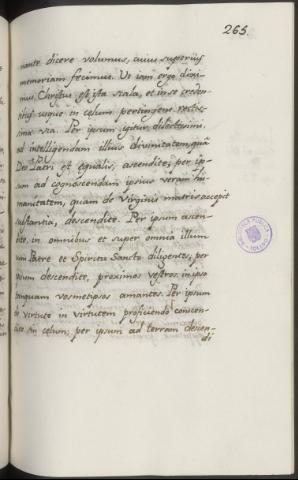 265.
nante dicere volumus, cuius superius
memoriam fecimus. Ut iam ergo dixi-
mus, Christus est ista scala, et in se creden-
tibus usque in celum pertingens rectis-
sima via. Per ipsum igitur, dilectissimi,
ad intelligendam illius divinitatem, qua
Deo Patri est equalis, ascendite; per ip-
sum ad cognoscendam ipsius veram hu-
manitatem, quam de Virginis matris accepit
substantia, descendite. Per ipsum ascen-
dite, in omnibus et super omnia illum
cum Patre et Spiritu Sancto diligentes; per
ipsum descendite, proximos vestros in ipso
tanquam vosmetipsos amantes. Per ipsum
de virtute in virtutem proficiendo conscen-
dite in celum; per ipsum ad terram descen-
di